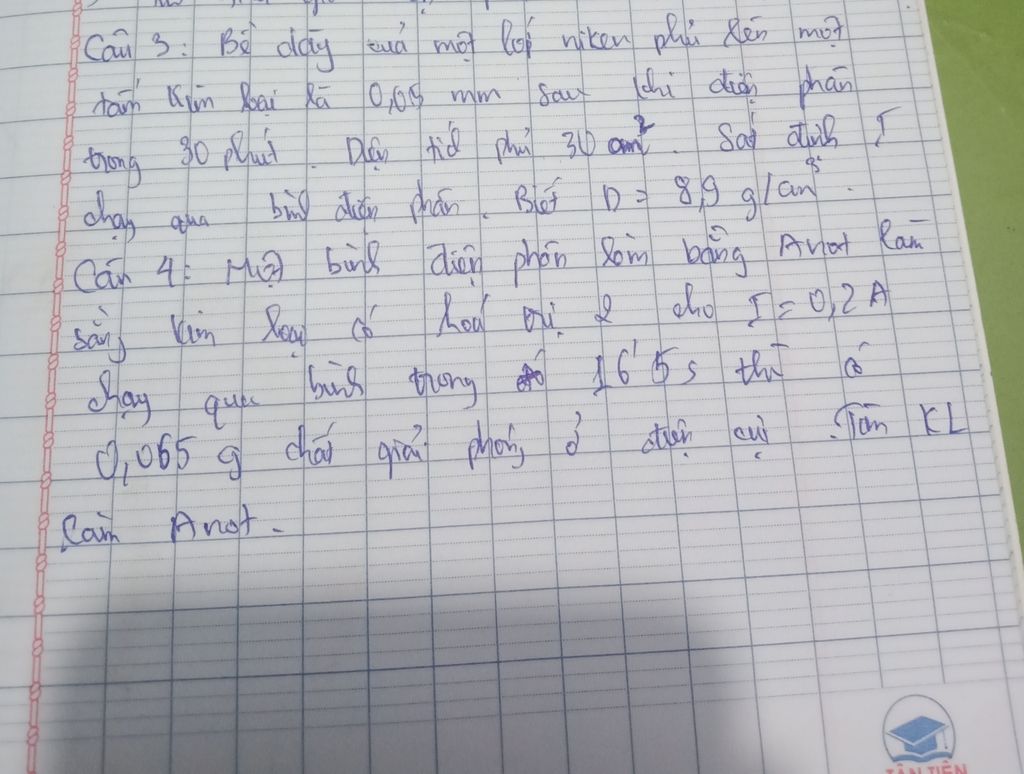 Câu 3: Bề dày của một lớp niken phủ lên một
tấm kim loại là 0,05 mm sau khi điện phân
trong 30 phút. Diện tích phủ 30 cm². Xác định I
chạy qua bình điện phân. Biết D = 8,9 g/cm³.
Câu 4: Một bình điện phân làm bằng Anot làm
bằng kim loại có hoá trị 2 cho I = 0,2 A
chạy qua bình trong 16' 5s thì có
0,065 g chất giải phóng ở điện cực. Tìm KL
làm Anot.
TÂN TIẾN